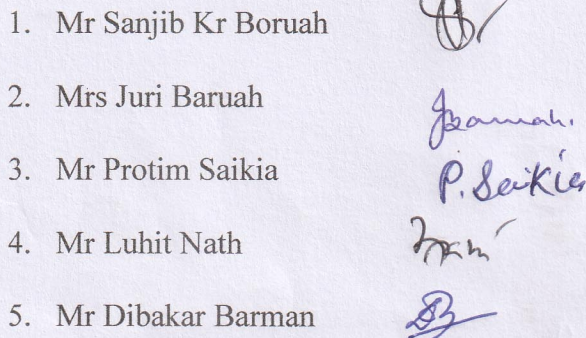 1. Mr Sanjib Kr Boruah
2. Mrs Juri Baruah JBaruah.
3. Mr Protim Saikia P. Saikia
4. Mr Luhit Nath
5. Mr Dibakar Barman